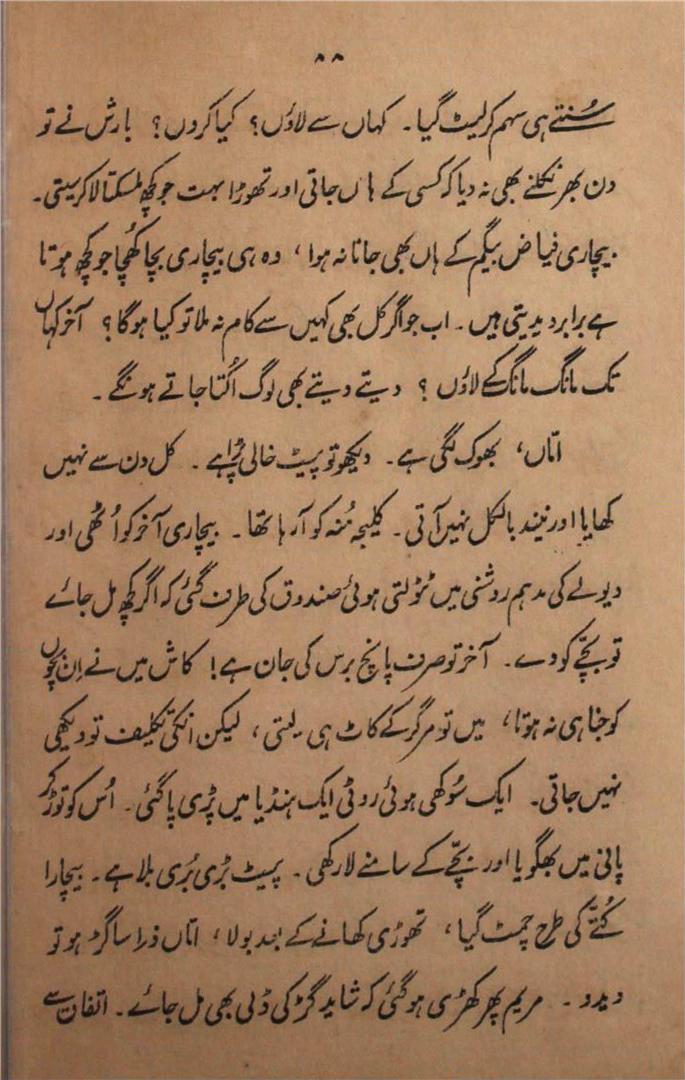 ۸۸
سُنتے ہی سہم کر لیٹ گیا۔ کہاں سے لاؤں؟ کیا کروں؟ بارش نے تو
دن بھر نکلنے بھی نہ دیا کہ کسی کے ہاں جاتی اور تھوڑا بہت جو کچھ ملسکتا لا کر سیتی۔
بیچاری فیاض بیگم کے ہاں بھی جانا نہ ہوا، وہ ہی بیچاری بچا کھُچا جو کچھ ہوتا
ہے برابر دیدیتی ہیں۔ اب جو اگر کل بھی کہیں سے کام نہ ملا تو کیا ہوگا؟ آخر کہاں
تک مانگ مانگ کے لاؤں؟ دیتے دیتے بھی لوگ اُکتا جاتے ہونگے۔
امّاں، بھوک لگی ہے۔ دیکھو تو پیٹ خالی پڑا ہے۔ کل دن سے نہیں
کھایا اور نیند بالکل نہیں آتی۔ کلیجہ مُنہ کو آ رہا تھا۔ بیچاری آخر کو اُٹھی اور
دیولے کی مدہم روشنی میں ٹٹولتی ہوئی صندوق کی طرف گئی کہ اگر کچھ مل جائے
تو بچّے کو دے۔ آخر تو صرف پانچ برس کی جان ہے! کاش میں نے اِن بچّوں
کو جنا ہی نہ ہوتا، میں تو مر گر کے کاٹ ہی لیتی، لیکن انکی تکلیف تو دیکھی
نہیں جاتی۔ ایک سُوکھی ہوئی روٹی ایک ہنڈیا میں پڑی پا گئی۔ اُس کو توڑ کر
پانی میں بھگویا اور بچّے کے سامنے لا رکھی۔ پیٹ بڑی بُری بلا ہے۔ بیچارا
کُتّے کی طرح چمٹ گیا، تھوڑی کھانے کے بعد بولا، امّاں ذرا سا گڑ ہو تو
دیدو۔ مریم پھر کھڑی ہو گئی کہ شاید گڑ کی ڈلی بھی مل جائے۔ اتفاق سے